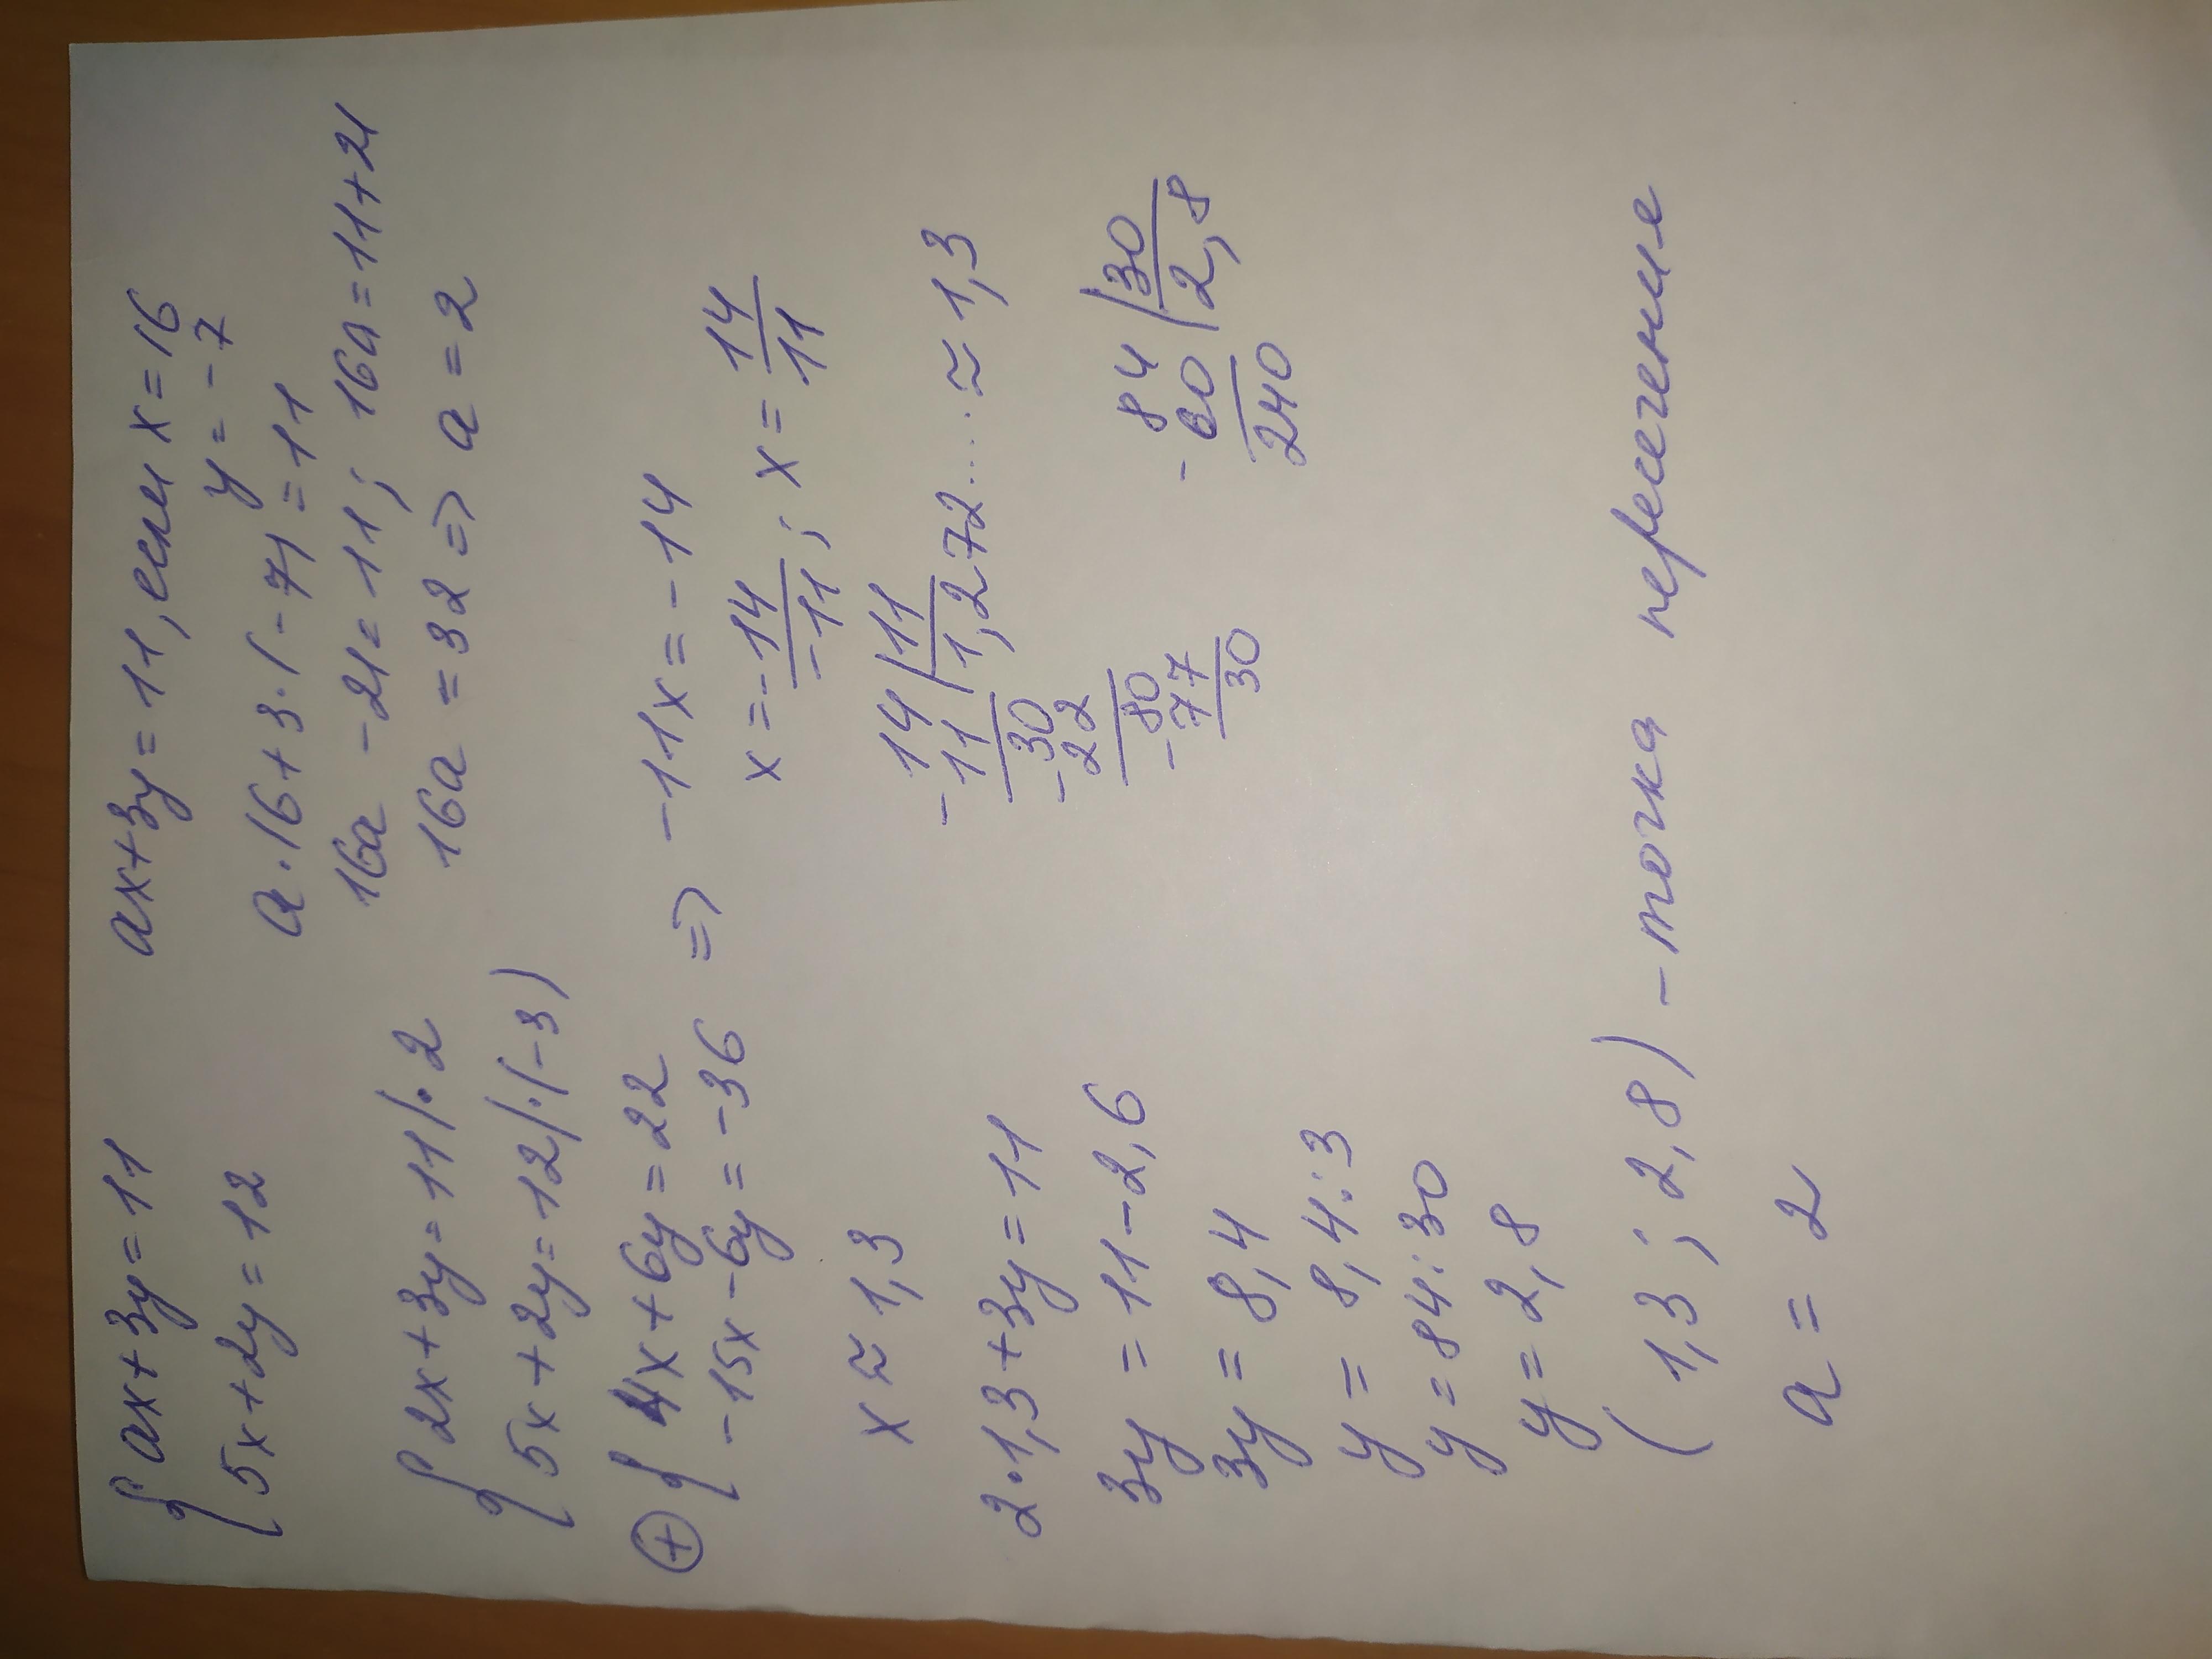 { ax+3y=11
5x+2y=12
ax+3y=11, если x=16
y=-7
a·16+3·(-7)=11
16a-21=11; 16a=11+21
16a=32 => a=2
{ 2x+3y=11 |·2
5x+2y=12 |·(-3)
⊕ { 4x+6y=22
-15x-6y=-36 => -11x=-14
x=\frac{-14}{-11}; x=\frac{14}{11}
x≈1,3
14 | 11
-11 1,272.... ≈1,3
-30
22
-80
77
30
2·1,3+3y=11
3y=11-2,6
3y=8,4
y=8,4:3
y=84:30
y=2,8
84 | 30
-60 2,8
240
(1,3; 2,8) - точка пересечение
a=2